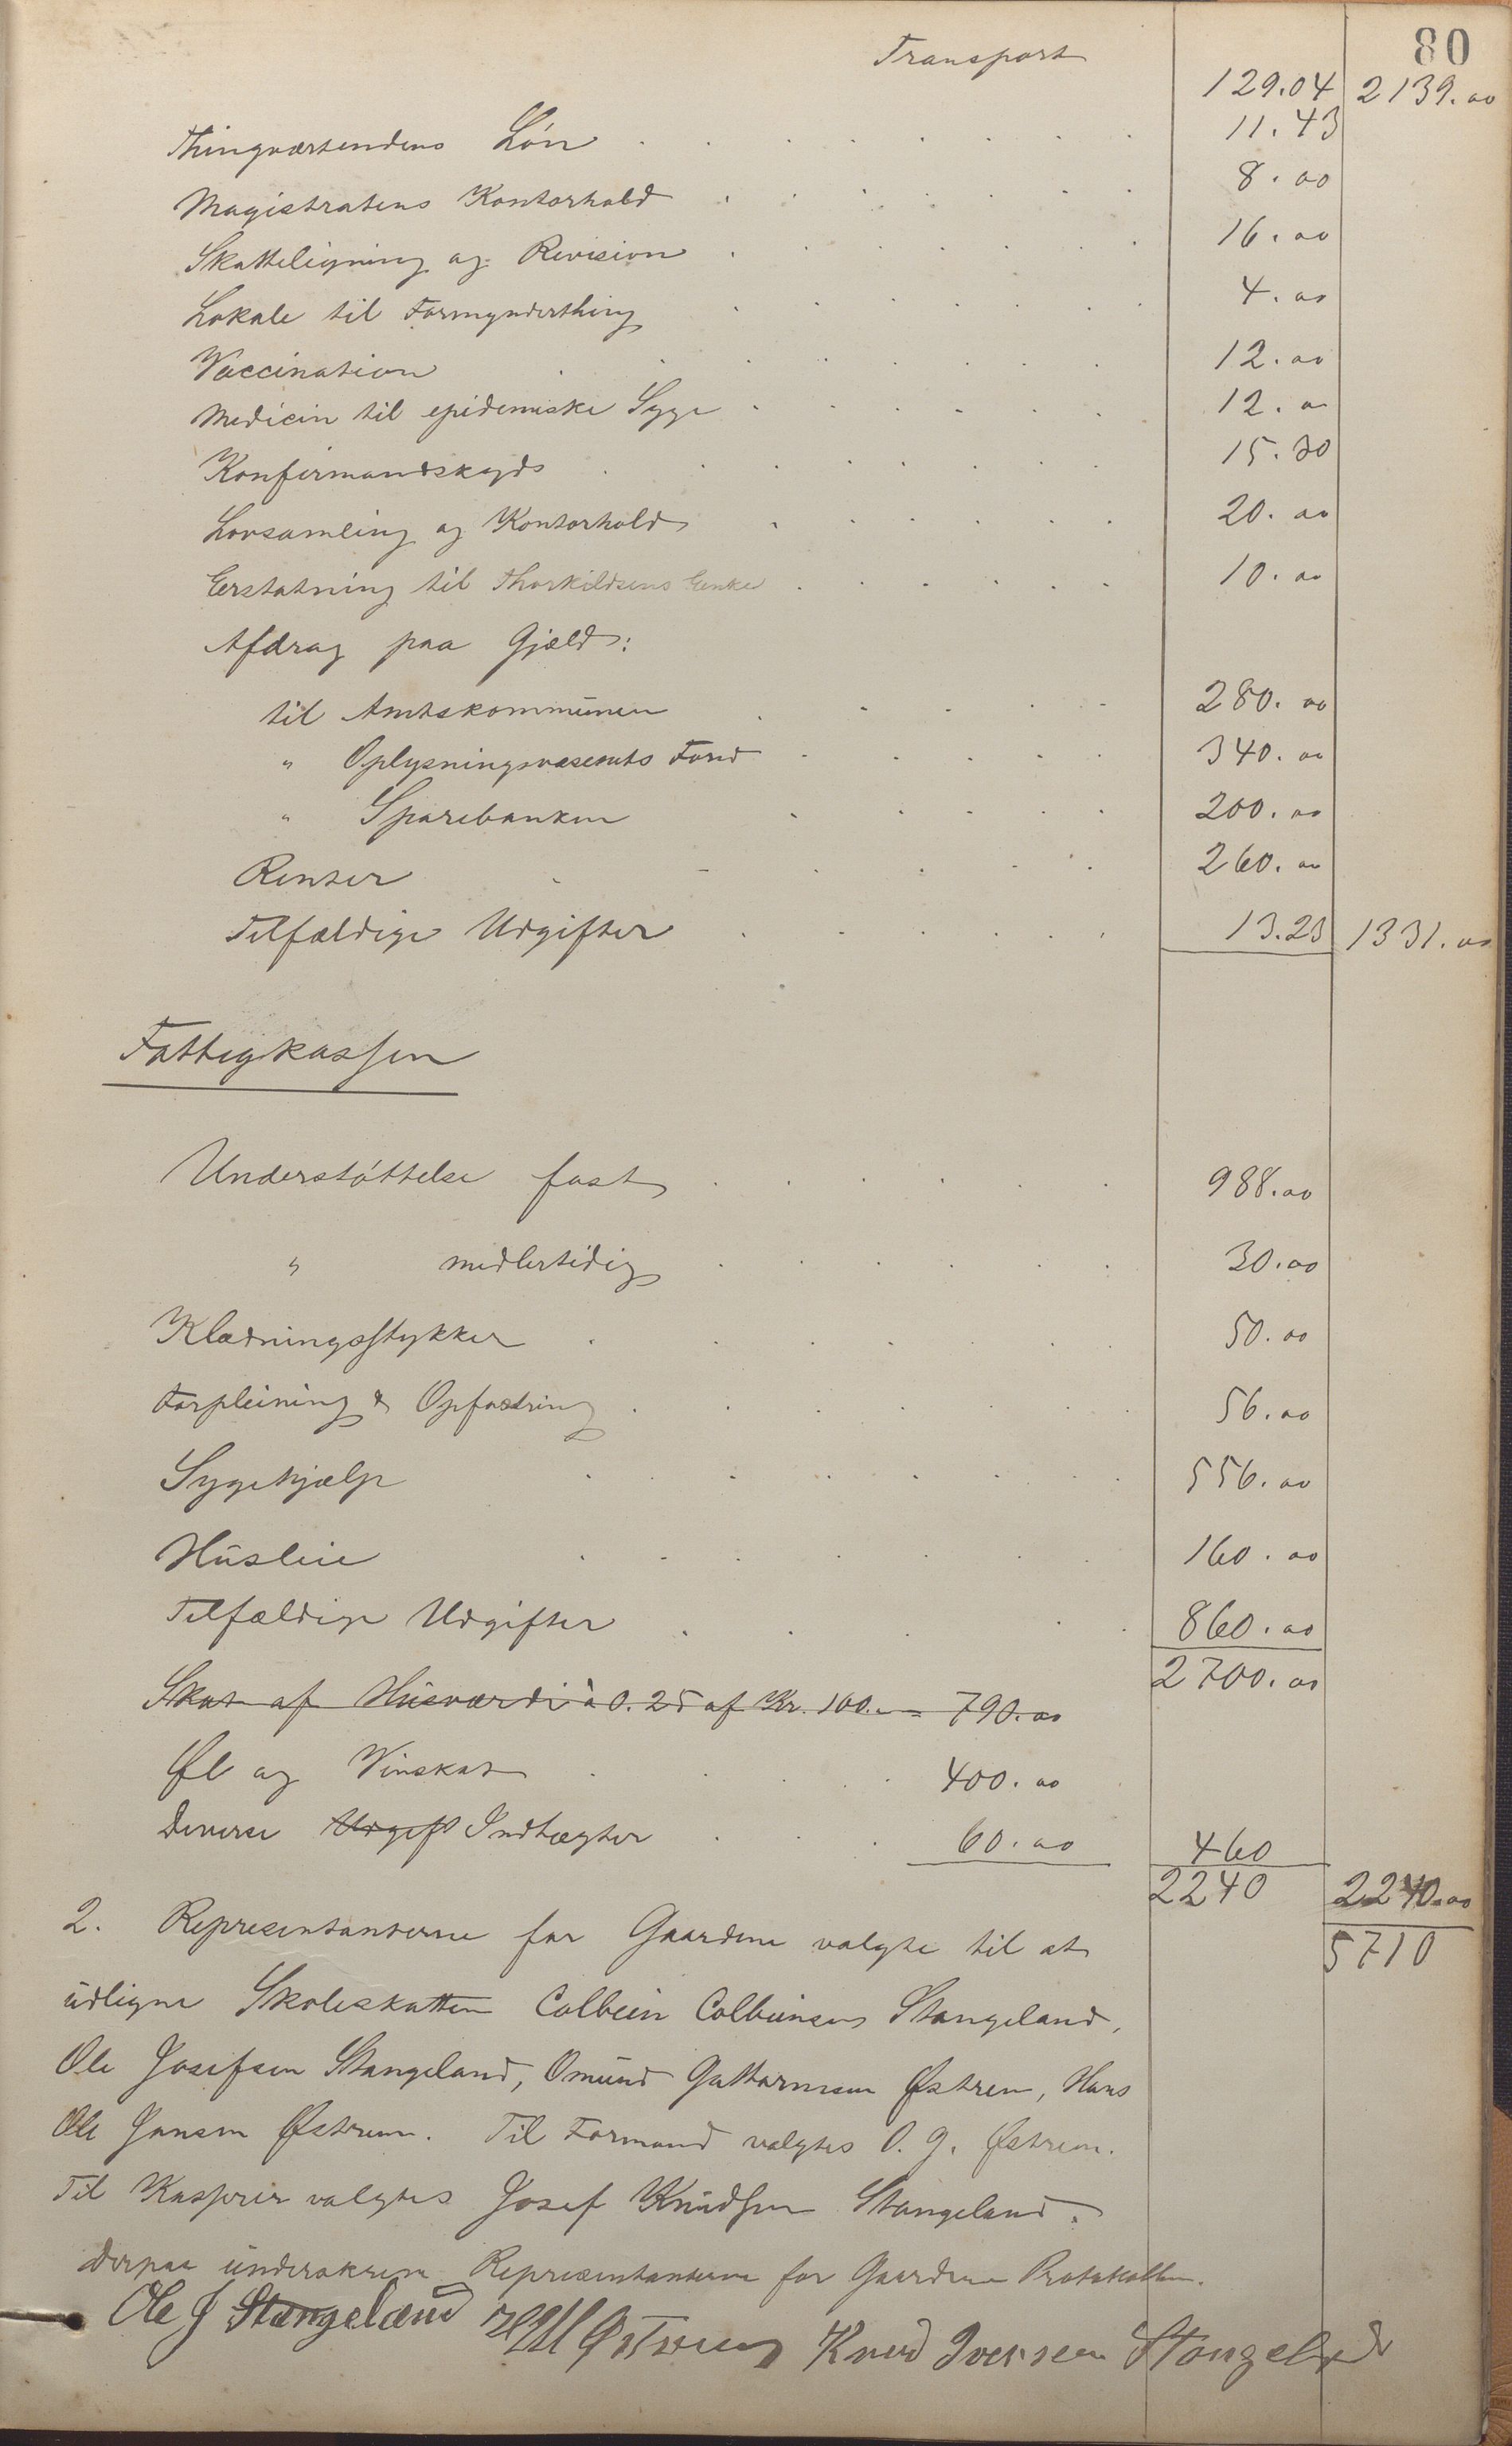 80
Transport 129.04 2139.00
Thingværtendens Løn 11.43
Magistratens Kontorhold 8.00
Skatteligning og Revision 16.00
Lokale til Formynderthing 4.00
Vaccination 12.00
Medicin til epidemiske Syge 12.00
Konfirmandskyds 15.30
Lovsamling og Kontorhold 20.00
Erstatning til Thorkildsens Enke 10.00
Afdrag paa Gjæld:
til Amtskommunen 280.00
" Oplysningsvæsenets Fond 340.00
" Sparebanken 200.00
Renter 260.00
Tilfældige Udgifter 13.23 1331.00
Fattigkassen
Understøttelse fast 988.00
" midlertidig 30.00
Klædningsstykker 50.00
Forpleining & Opfostring 56.00
Sygehjælp 556.00
Husleie 160.00
Tilfældige Udgifter 860.00
2700.00
Skat af Husværdi à 0.25 af Kr. 100.00 = 790.00
Øl og Vinskat 400.00
Diverse Udgift Indtægter 60.00 460
2240 2240.00
5710
2. Repræsentanterne for Gaardene valgte til at
udligne Skoleskatten Colbein Colbeinsen Stangeland,
Ole Josefsen Stangeland, Omund Guttormsen Østrem, Hans
Ole Jansen Østrem. Til Formand valgtes O. G. Østrem.
Til Kasserer valgtes Josef Knudsen Stangeland.
Derpaa underskrev Repræsentanterne for Gaardene Protokollen.
Ole J Stangeland Østrem Knud Iversen Stangeland